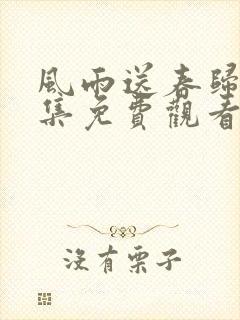 風雨送春歸
集免費觀看
沒有栗子